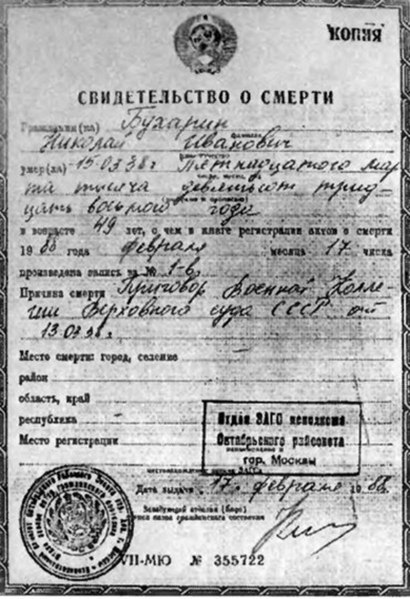 КОПИЯ
СВИДЕТЕЛЬСТВО О СМЕРТИ
Гражданин(ка) Бухарин
фамилия
Николай Иванович
имя, отчество
умер(ла) 15.03.38 г. Пятнадцатого мар
та тысяча девятьсот трид
цать восьмого года
в возрасте 49 лет, о чем в книге регистрации актов о смерти
1988 года февраля месяца 17 числа
произведена запись за № 1-в
Причина смерти Приговор Военной Колле
гии Верховного суда СССР от
13.03.38 г.
Место смерти: город, селение
район
область, край
республика
Место регистрации
Отдел ЗАГС исполкома
Октябрьского райсовета
гор. Москвы
Дата выдачи 17 февраля 1988 г.
Заведующий отделом (бюро)
записи актов гражданского состояния
VII-МЮ № 355722